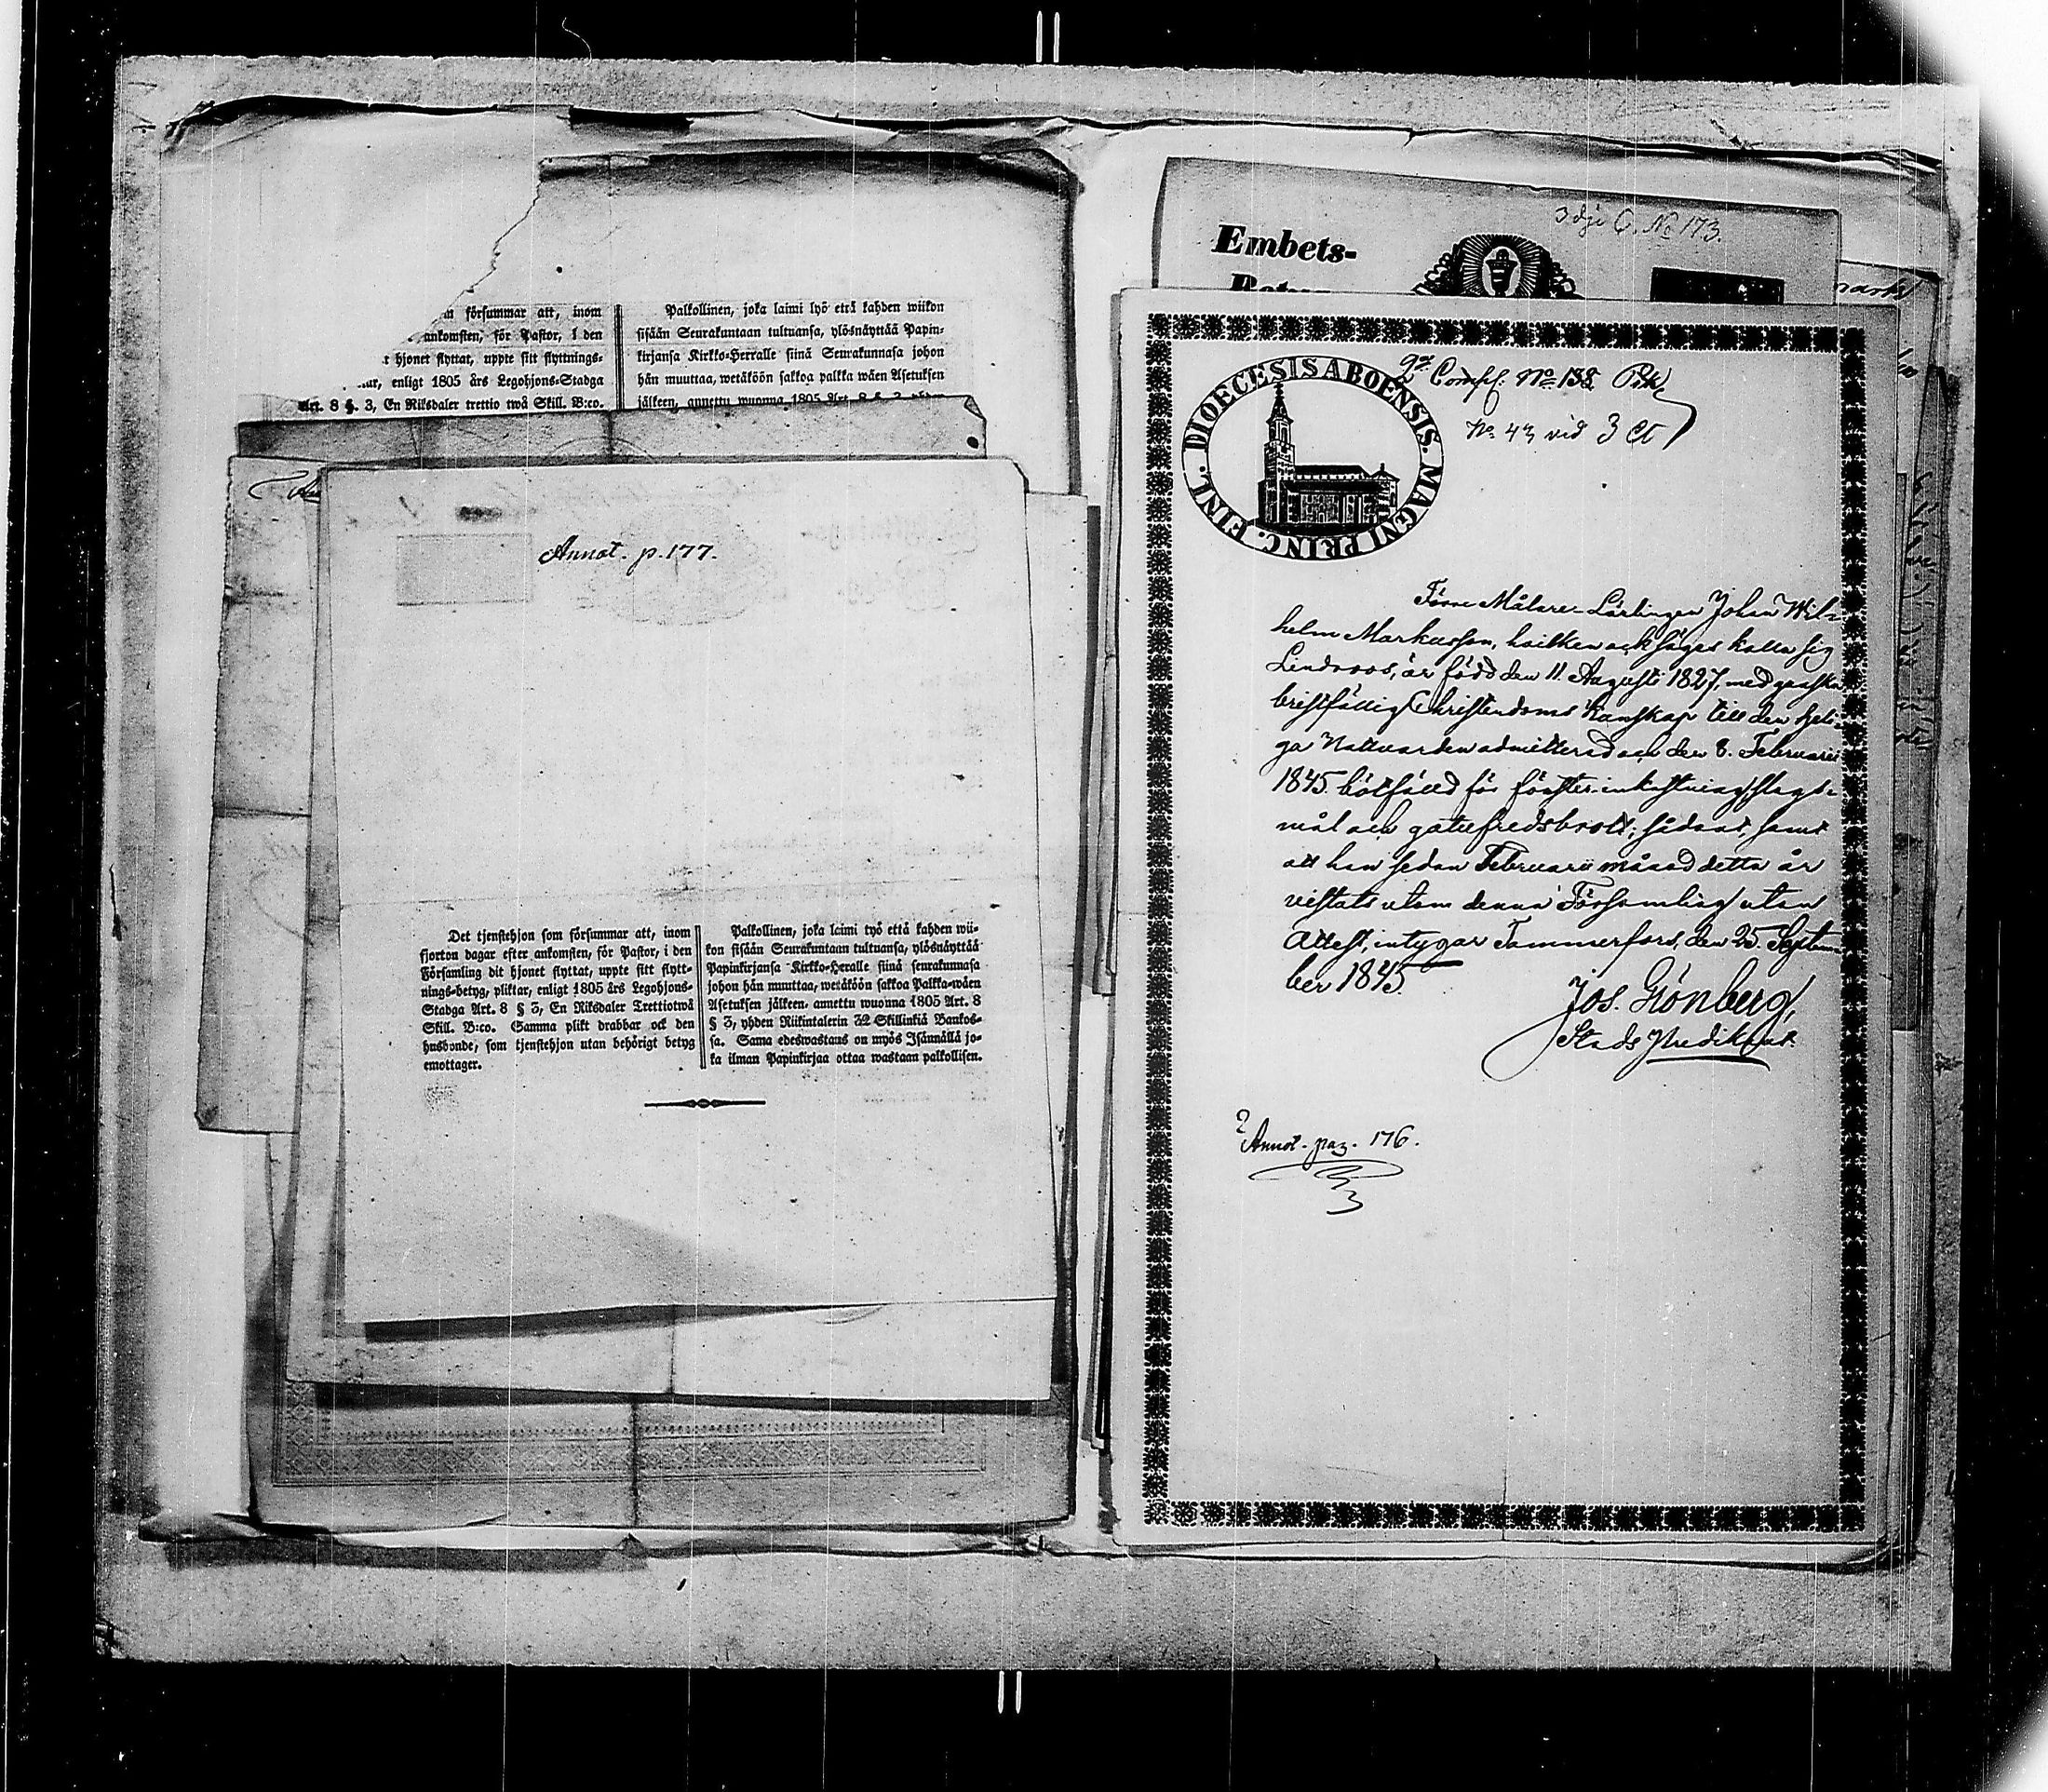 m försummar att, inom
ankomsten, för Pastor, i den
t hjonet flyttat, uppte sitt flyttnings-
enligt 1805 års Legohjons-Stadga
Art. 8 §. 3, En Riksdaler trettio twå Skill. B:co.
Palkollinen, joka laimi lyö että kahden wiikon
sisään Seurakuntaan tultuansa, ylösnäyttää Papin-
kirjansa Kirkko-Herralle siinä Seurakunnasa johon
hän muuttaa, wetäköön sakkoa palkka wäen Asetuksen
jälkeen, annettu wuonna 1805 Art. 8 §. 3
Annot. p. 177.
Det tjenstehjon som försummar att, inom
fjorton dagar efter ankomsten, för Pastor, i den
Församling dit hjonet flyttat, uppte sitt flytt-
nings-betyg, pliktar, enligt 1805 års Legohjons-
Stadga Art. 8 § 3, En Riksdaler Trettiotwå
Skill. B:co. Samma plikt drabbar ock den
husbonde, som tjenstehjon utan behörigt betyg
emottager.
Palkollinen, joka laimi työ että kahden wii-
kon sisään Seurakuntaan tultuansa, ylösnäyttää
Papinkirjansa Kirkko-Heralle siinä seurakunnasa
johon hän muuttaa, wetäköön sakkoa Palkka-wäen
Asetuksen jälkeen, annettu wuonna 1805 Art. 8
§ 3, yhden Riikintalerin 32 Skillinkiä Bankos-
sa. Sama edeswastaus on myös Isännällä jo-
ka ilman Papinkirjaa ottaa wastaan palkollisen.
3dje C. No 173.
Embets-
DIOECESIS ABOENSIS. MAGNI PRINC. FINL.
Compl. No 138
No 43 vid 3
Förre Målare-Lärlingen Johan Wil-
helm Markusson, hvilken ock säges kalla sig
Lindroos, är född den 11 Augusti 1827, med ganska
bristfällig Christendoms kunskap till den heli-
ga Nattvarden admitterad och den 8. Februarii
1845 bötfälld för fönster-inkastning, slags-
mål och gatufredsbrott; sådant, samt
att han sedan Februarii månad detta år
vistats utom denna Församling utan
Attest, intygar Tammerfors, den 25. Septem-
ber 1845.
Jos. Grönberg,
Stads Predikant.
Annot. pag. 176.